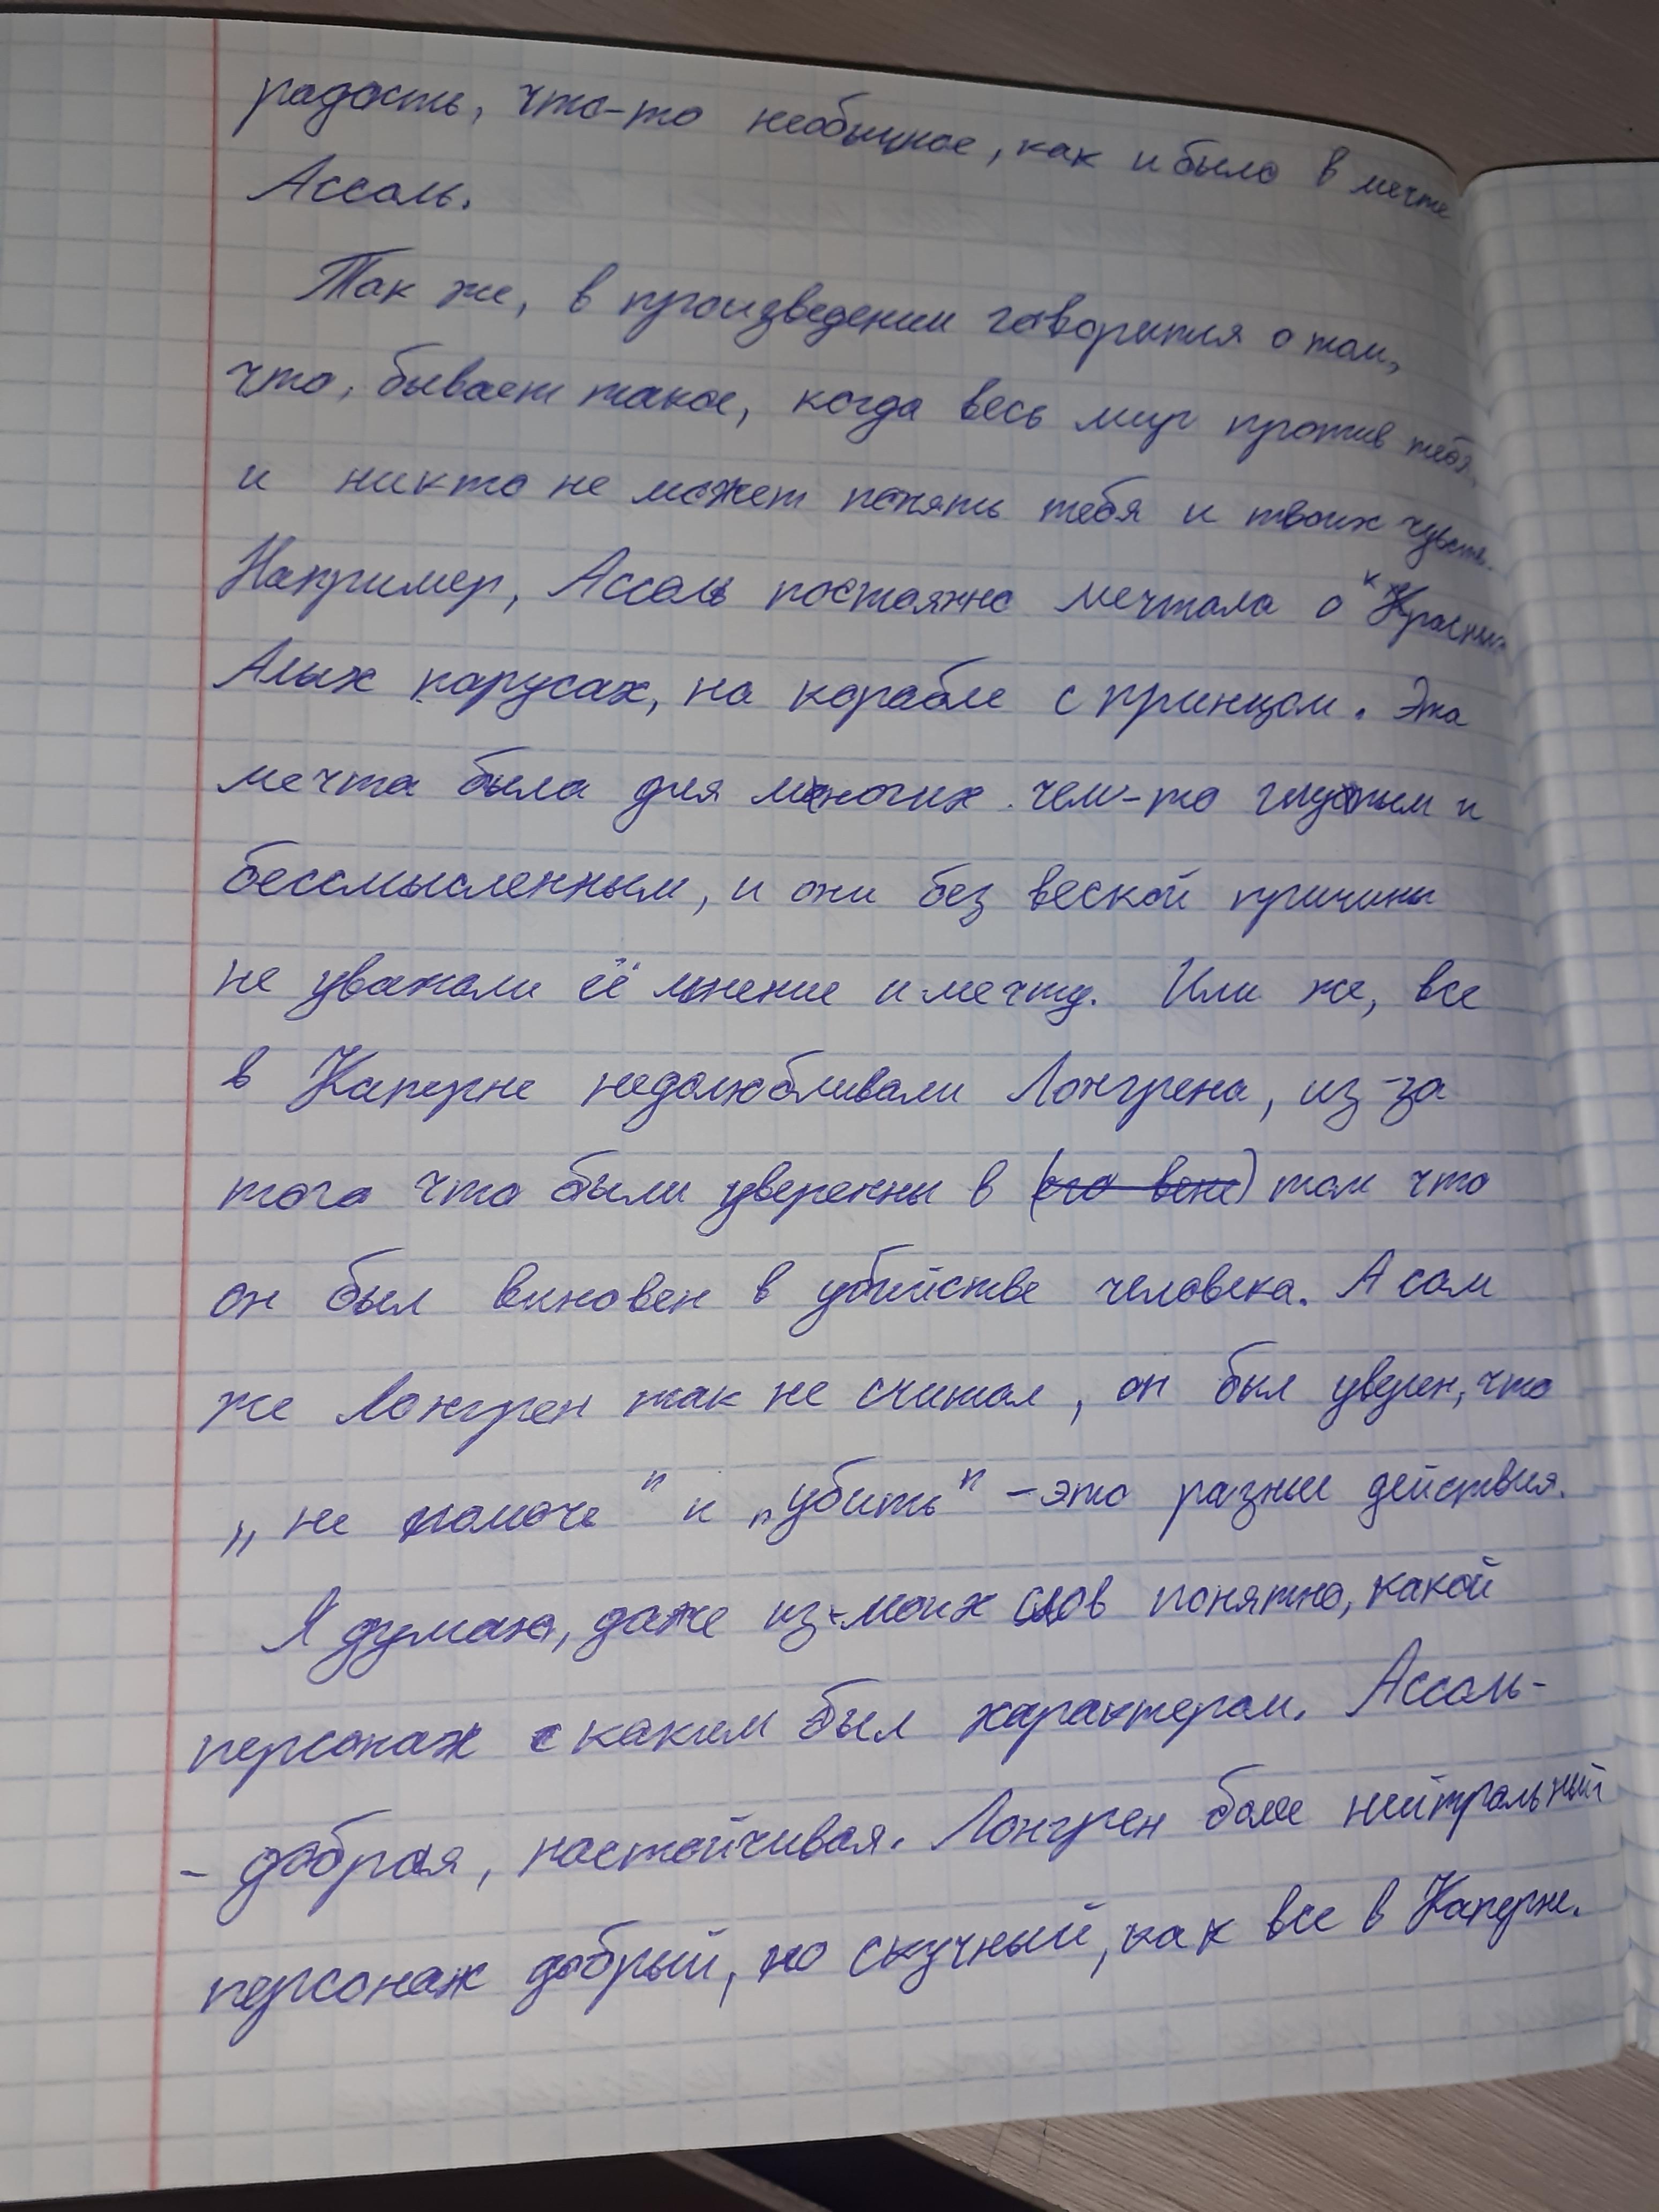 радость, что-то необычное, как и было в мечте
Ассоль.
Так же, в произведении говорится о том,
что, бывает такое, когда весь мир против тебя,
и никто не может понять тебя и твоих чувств.
Например, Ассоль постоянно мечтала о Красных
Алых парусах, на корабле с принцом. Эта
мечта была для многих чем-то глупым и
бессмысленным, и они без веской причины
не уважали её мнение и мечту. Или же, все
в Каперне недолюбливали Лонгрена, из-за
того что были уверенны в (его вене) том что
он был виновен в убийстве человека. А сам
же Лонгрен так не считал, он был уверен, что
„не помочь" и „убить" – это разные действия.
Я думаю, даже из моих слов понятно, какой
персонаж с каким был характером. Ассоль-
- добрая, настойчивая. Лонгрен более нейтральный
персонаж добрый, но скучный, как все в Каперне.